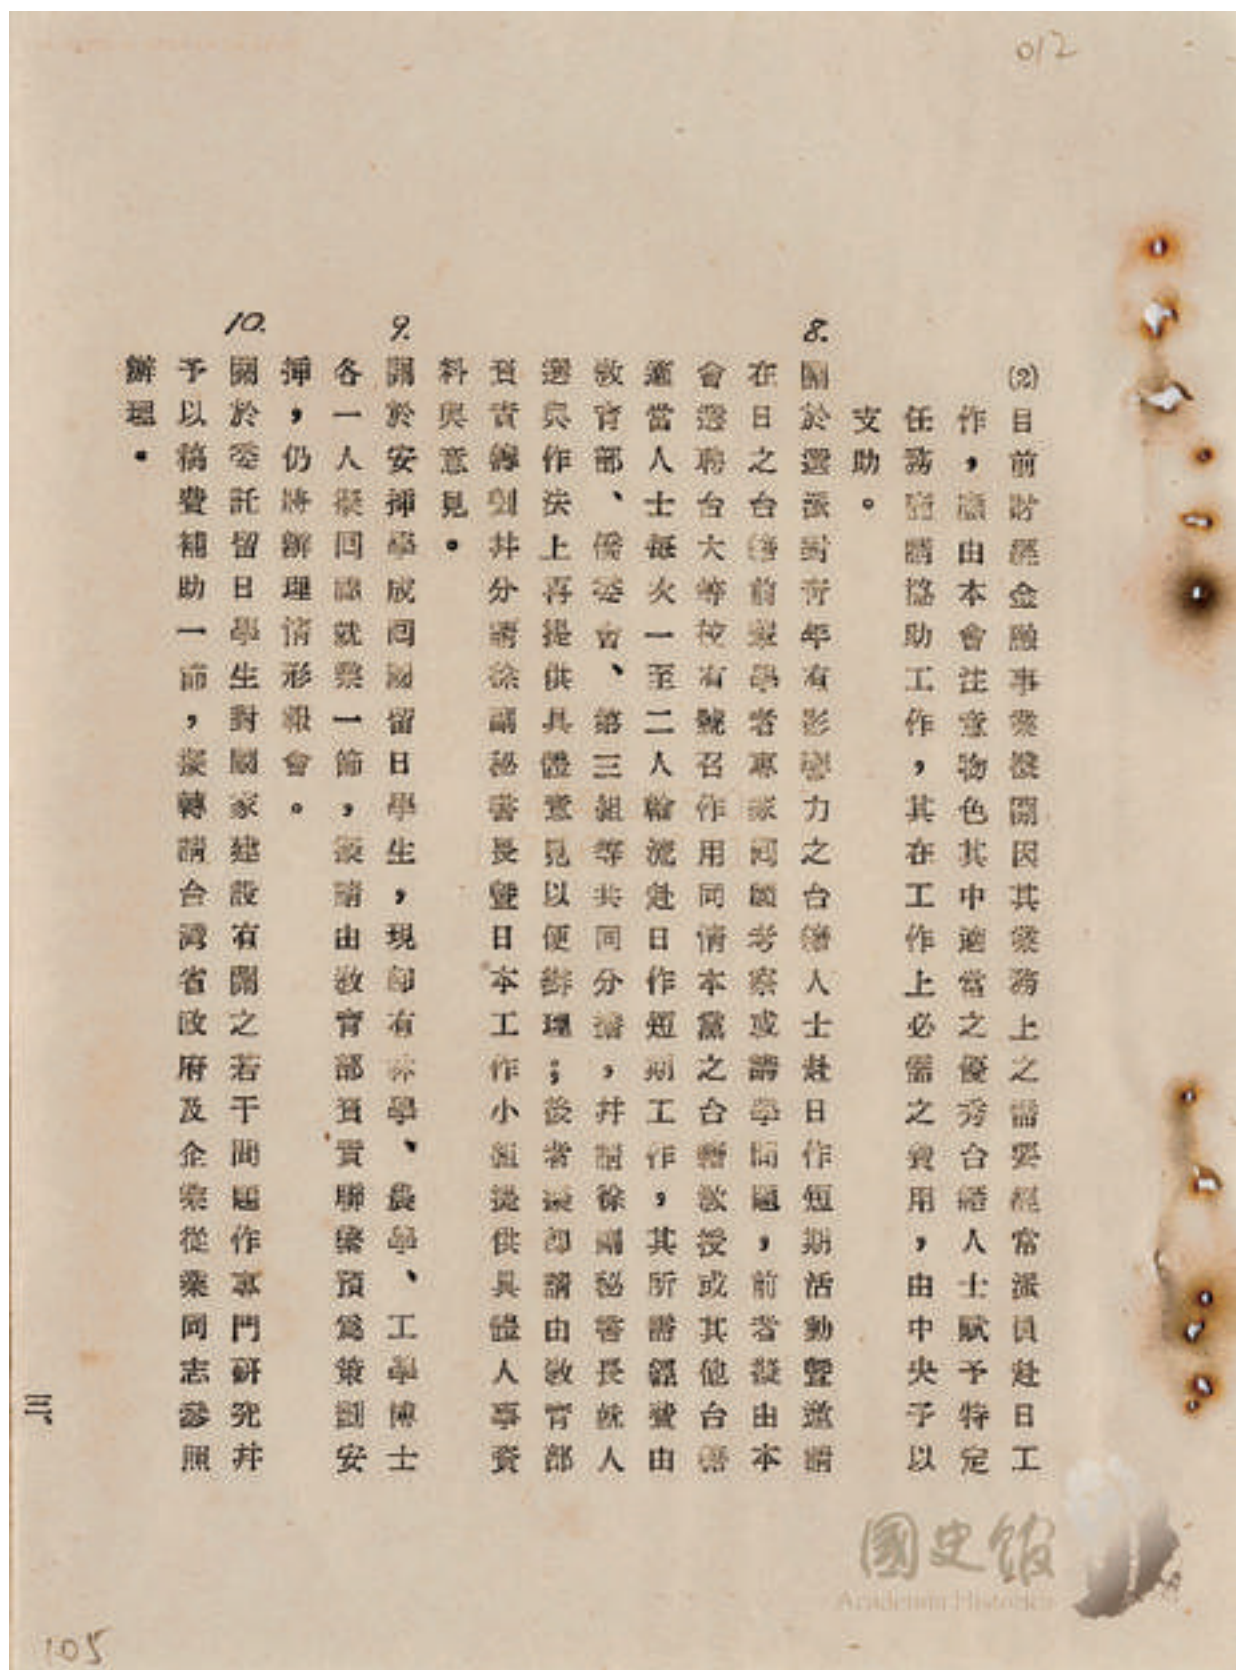 012
(2)目前財經金融事業機關因其業務上之需要經常派員赴日工
作,應由本會注意物色其中適當之優秀台籍人士賦予特定
任務密請協助工作,其在工作上必需之費用,由中央予以
支助。
8.關於選派對青年有影響力之台籍人士赴日作短期活動暨邀請
在日之台籍前輩學者專家回國考察或講學問題,前者擬由本
會選聘台大等校有號召作用同情本黨之台籍教授或其他台籍
適當人士每次一至二人輪流赴日作短期工作,其所需經費由
教育部、僑委會、第三組等共同分擔,并請徐副秘書長就人
選與作法上再提供具體意見以便辦理;後者擬即請由教育部
負責籌劃并分請徐副秘書長暨日本工作小組提供具體人事資
料與意見。
9.關於安插學成回國留日學生,現即有林學、農學、工學博士
各一人擬回國就業一節,擬請由教育部負責聯繫預為策劃安
插,仍將辦理情形報會。
10.關於委託留日學生對國家建設有關之若干問題作專門研究并
予以稿費補助一節,擬轉請台灣省政府及企業從業同志參照
辦理。
三、
105
國史館
Academia Historica